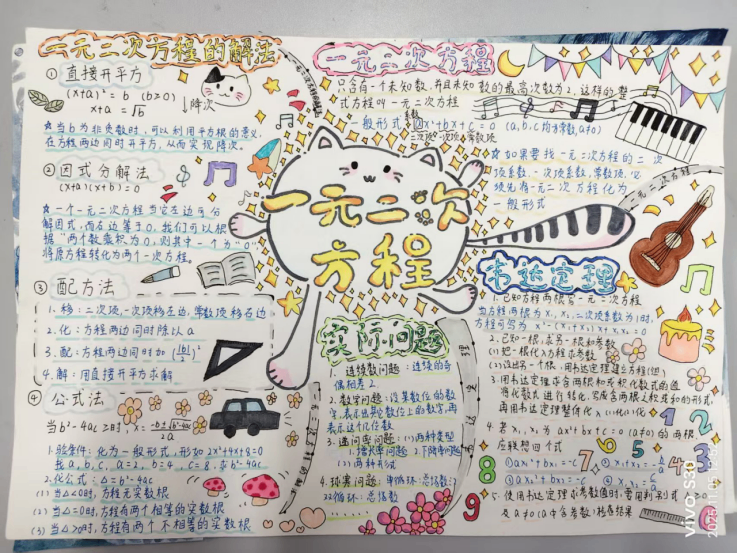 一元二次方程的解法
① 直接开平方
(x+a)²=b (b≥0)
x+a=√b
↓降次
☆当b为非负数时,可以利用平方根的意义,
在方程两边同时开平方,从而实现降次。
② 因式分解法
(x+a)(x+b)=0
☆一个一元二次方程当它左边可分
解因式,而右边等于0,我们可以根
据“两个数乘积为0,则其中一个为“0”
将原方程转化为两个一次方程。
③ 配方法
1.移:二次项,一次项移左边,常数项移右边
2.化:方程两边同时除以a
3.配:方程两边同时加(|b|/2)²
4.解:用直接开平方求解
④ 公式法
当b²-4ac≥时,x=-b±√b²-4ac/2a
1.验条件:化为一般形式,形如2x²+4x+8=0
找a,b,c,a=2,b=4,c=8.求b²-4ac
2.化公式:△=b²-4ac
(1)当△<0时,方程无实数根
(2)当△=0时,方程有两个相等的实数根
(3)当△>0时,方程有两个不相等的实数根
一元二次
方程
实际问题
1.连续数问题:连续的奇
偶相差2.
2.数字问题:设某数位的数
字,表示出其它数位上的数字,再
表示这个几位数
3.递问率问题:(1)两种类型
1.增长率问题 2.下降率问题
(2)两种形式
4.环赛问题:单循环:总场数:
双循环:总场数
一元二次方程
只含有一个未知数,并且未知数的最高次数为2,这样的整
式方程叫一元二次方程
系数
一般形式:ax²+bx+c=0 (a,b,c均为常数,a≠0)
二次项 一次项 常数项
☆如果要找一元二次方程的二次
项系数,一次项系数,常数项,必
须先将一元二次方程化为
一般形式
一元二次方程
韦达定理
1.已知方程两根写一元二次方程
如方程两根为x₁,x₂,二次项系数为1时,
方程可写为 x²-(x₁+x₂)x+x₁x₂=0
2.已知一根,求另一根和参数
(1)把一根代入方程求参数
(2)设出另一个根,用韦达定理建立方程(组)
3.用韦达定理求含两根和或积代数式的值
将代数式进行转化,写成含两根之和或和的形式,
再用韦达定理整体代入
4.若x₁,x₂为ax²+bx+c=0(a≠0)的两根,
应联想四个式
①ax₁²+bx₁=-c
③ax₂²+bx₂=-c
5.使用韦达定理求参数值时,需用判别式
及a≠0(a中含参数)检查结果
1
2
3
4
5
6
7
8
9
vivo S30